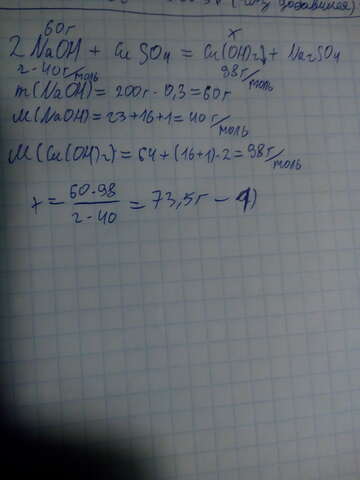 60г x
2 NaOH + CuSO4 = Cu(OH)2↓ + Na2SO4
2·40г/моль 98г/моль
m(NaOH) = 200г · 0,3 = 60г
M(NaOH) = 23+16+1 = 40г/моль
M(Cu(OH)2) = 64+(16+1)·2 = 98г/моль
x = 60·98 / 2·40 = 73,5г – 4)